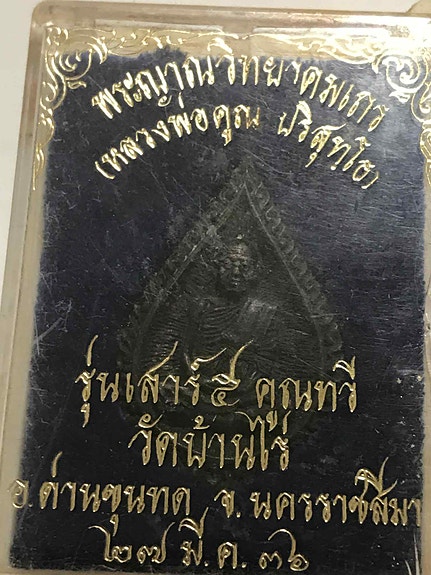 พระญาณวิทยาคมเถร
(หลวงพ่อคูณ ปริสุทฺโธ)
รุ่นเสาร์ ๕ คูณทวี
วัดบ้านไร่
อ.ด่านขุนทด จ.นครราชสีมา
๒๗ มี.ค. ๓๖